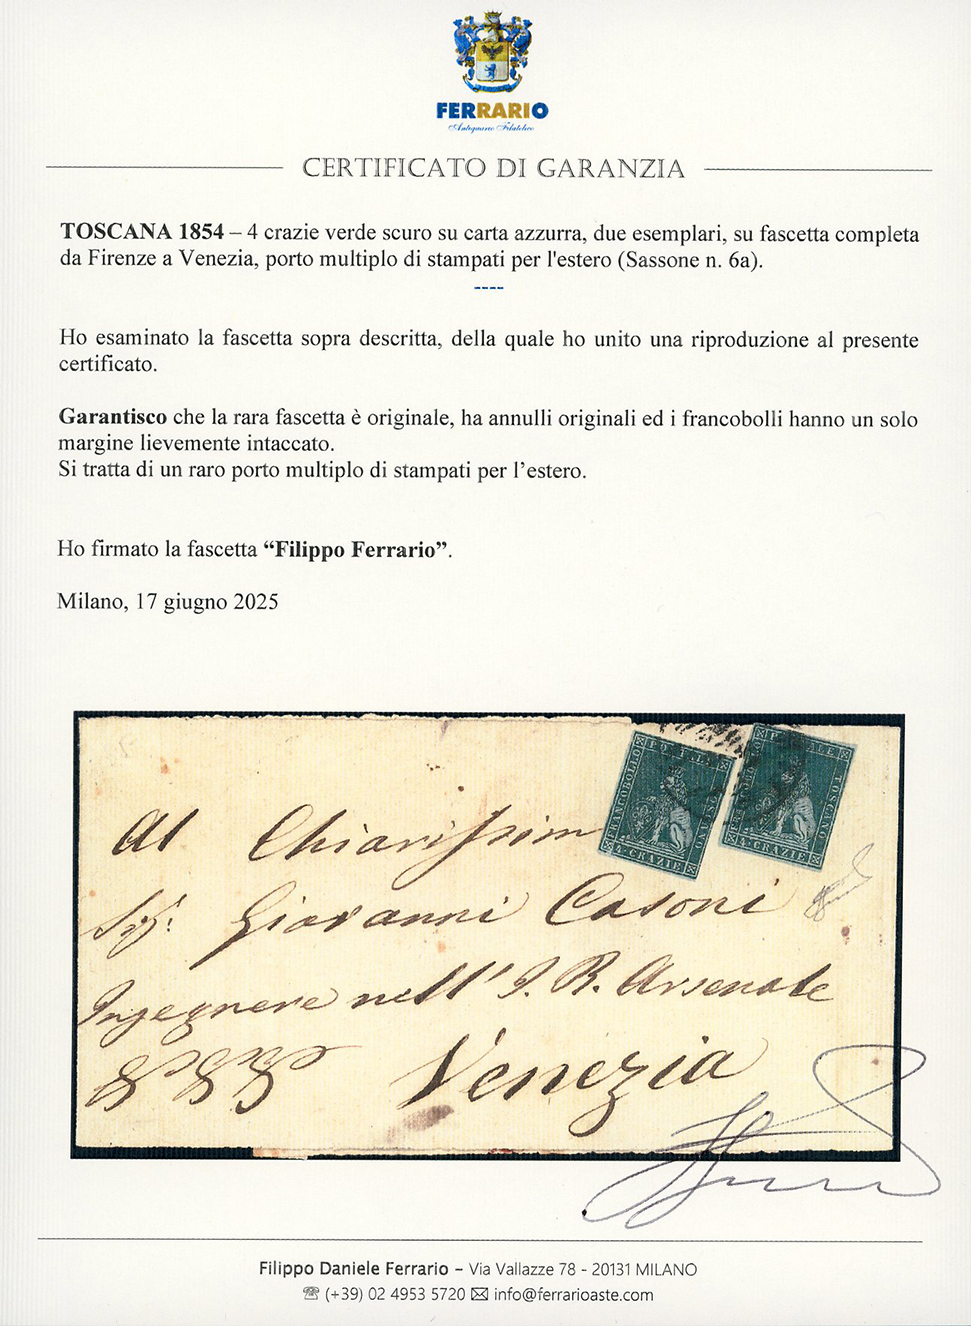 FERRARIO
Antiquario Filatelico
CERTIFICATO DI GARANZIA
TOSCANA 1854 – 4 crazie verde scuro su carta azzurra, due esemplari, su fascetta completa
da Firenze a Venezia, porto multiplo di stampati per l'estero (Sassone n. 6a).
----
Ho esaminato la fascetta sopra descritta, della quale ho unito una riproduzione al presente
certificato.
Garantisco che la rara fascetta è originale, ha annulli originali ed i francobolli hanno un solo
margine lievemente intaccato.
Si tratta di un raro porto multiplo di stampati per l’estero.
Ho firmato la fascetta “Filippo Ferrario”.
Milano, 17 giugno 2025
FRANCOBOLLO
4·CRAZIE
FRANCOBOLLO
TOSCANO
4·CRAZIE
Al Chiarissim
Sig: Giovanni Casoni
Ingegnere nell' I. R. Arsenale
Venezia
Filippo Daniele Ferrario – Via Vallazze 78 - 20131 MILANO
☏ (+39) 02 4953 5720 ✉ info@ferrarioaste.com